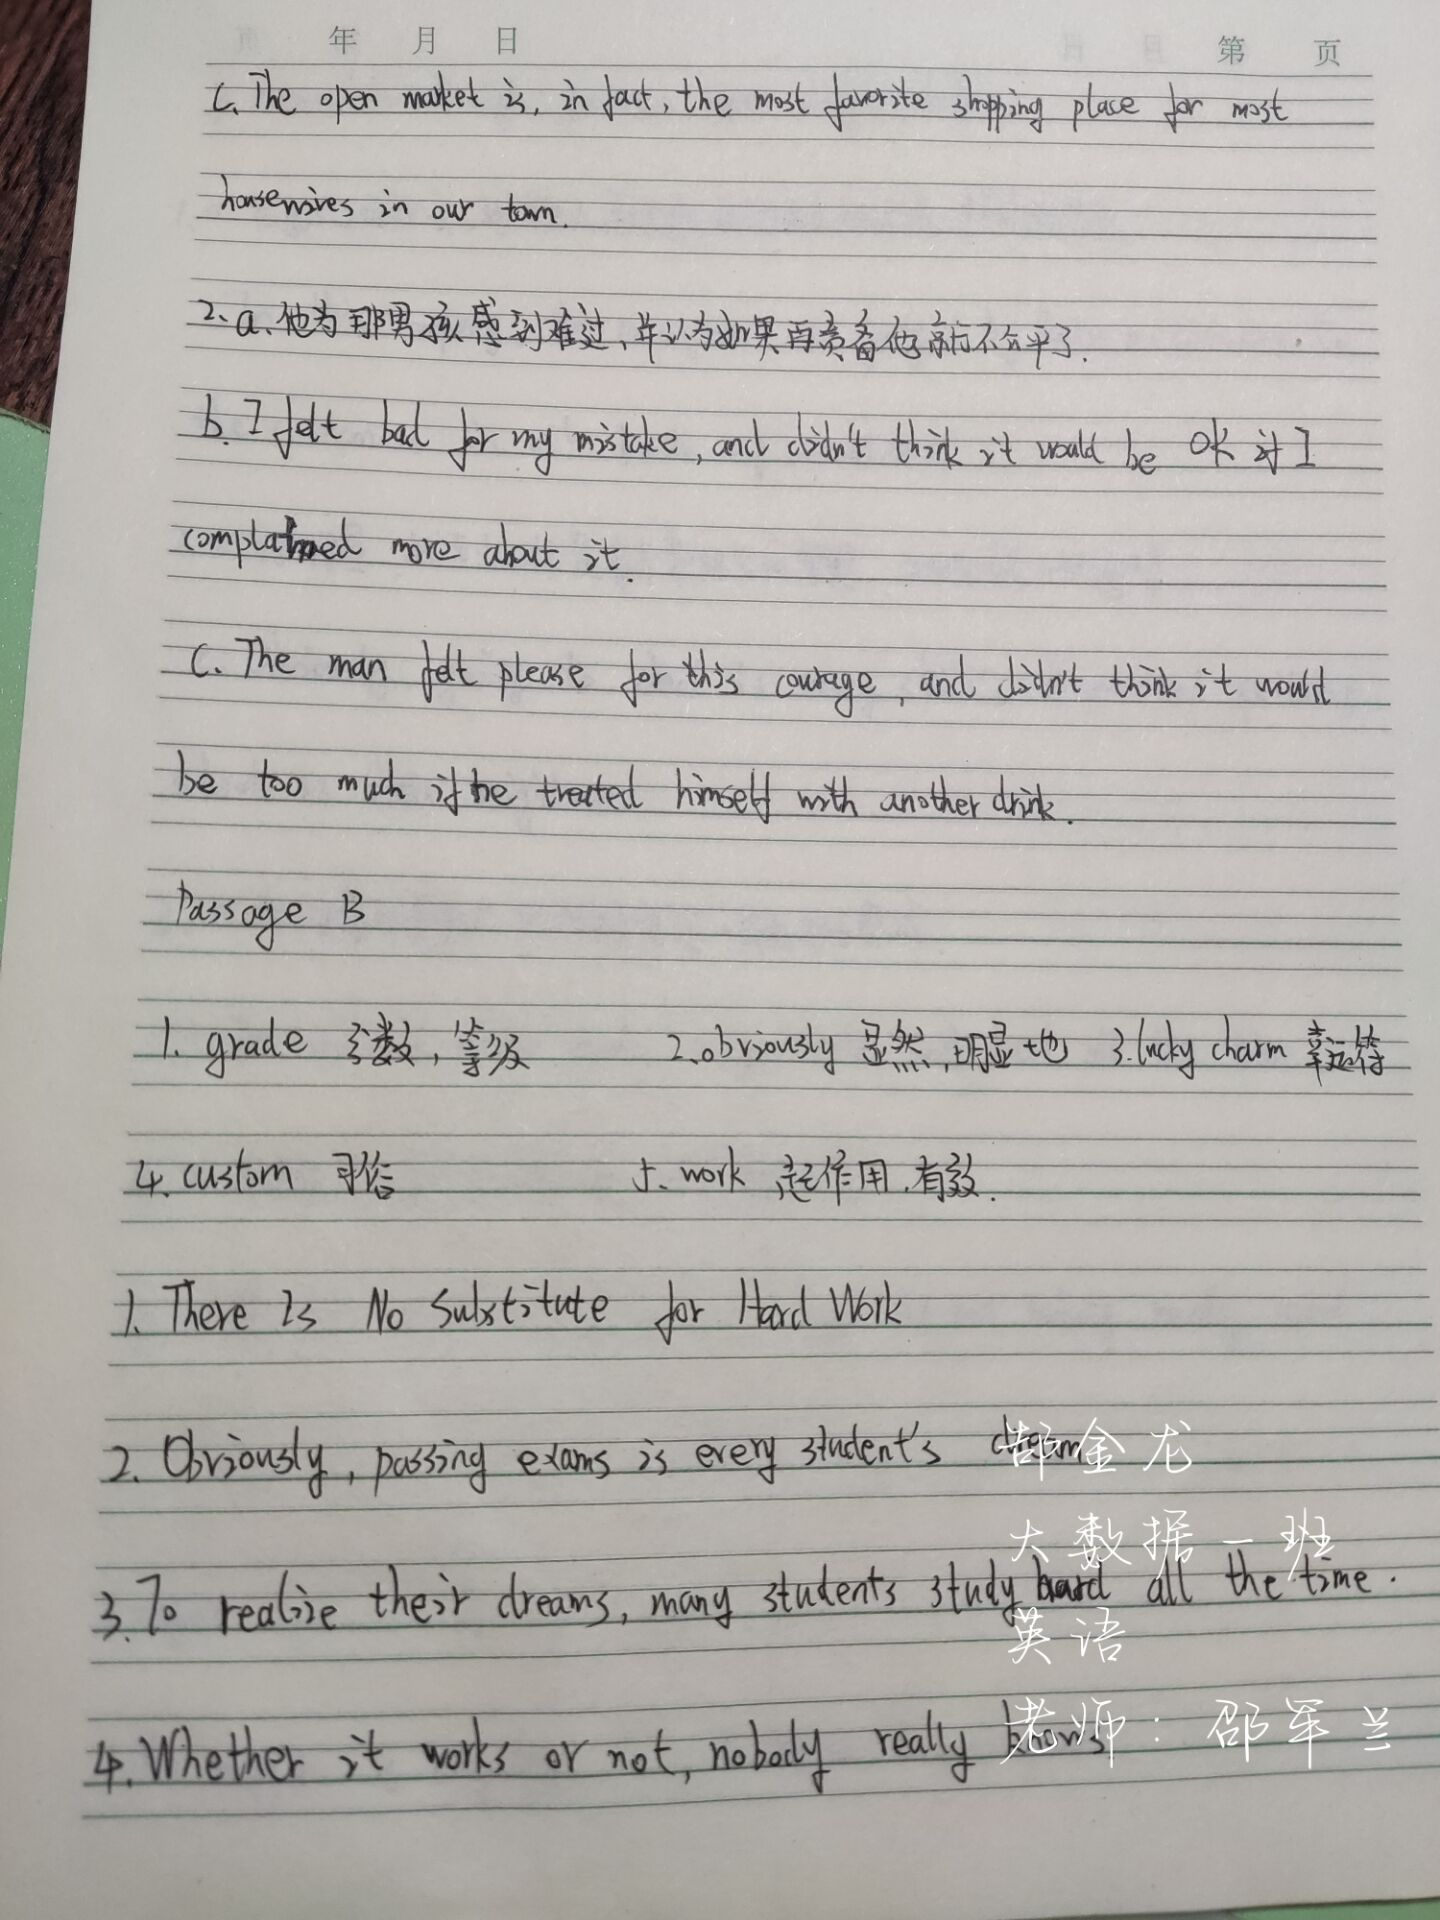 年 月 日 第 页
C. The open market is, in fact, the most favorite shopping place for most
housewives in our town.
2. a. 他为那男孩感到难过, 并认为如果再责备他就不公平了.
b. I felt bad for my mistake, and didn't think it would be OK if I
complained more about it.
C. The man felt please for this courage, and didn't think it would
be too much if he treated himself with another drink.
Passage B
1. grade 分数, 等级 2. obviously 显然, 明显地 3. lucky charm 幸运符
4. custom 习俗 5. work 起作用, 有效.
1. There Is No Substitute for Hard Work
2. Obviously, passing exams is every student's dream
金龙
大数据一班
3. To realize their dreams, many students study hard all the time.
英语
老师: 邵军兰
4. Whether it works or not, nobody really knows